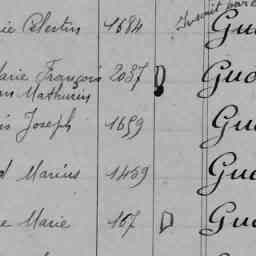 ie Celestin 1684 Gu
arie François 2037 D Gua
Mathurin
is Joseph 1659 Gu
d Marius 1459 Gua
e Marie 167 D Gu